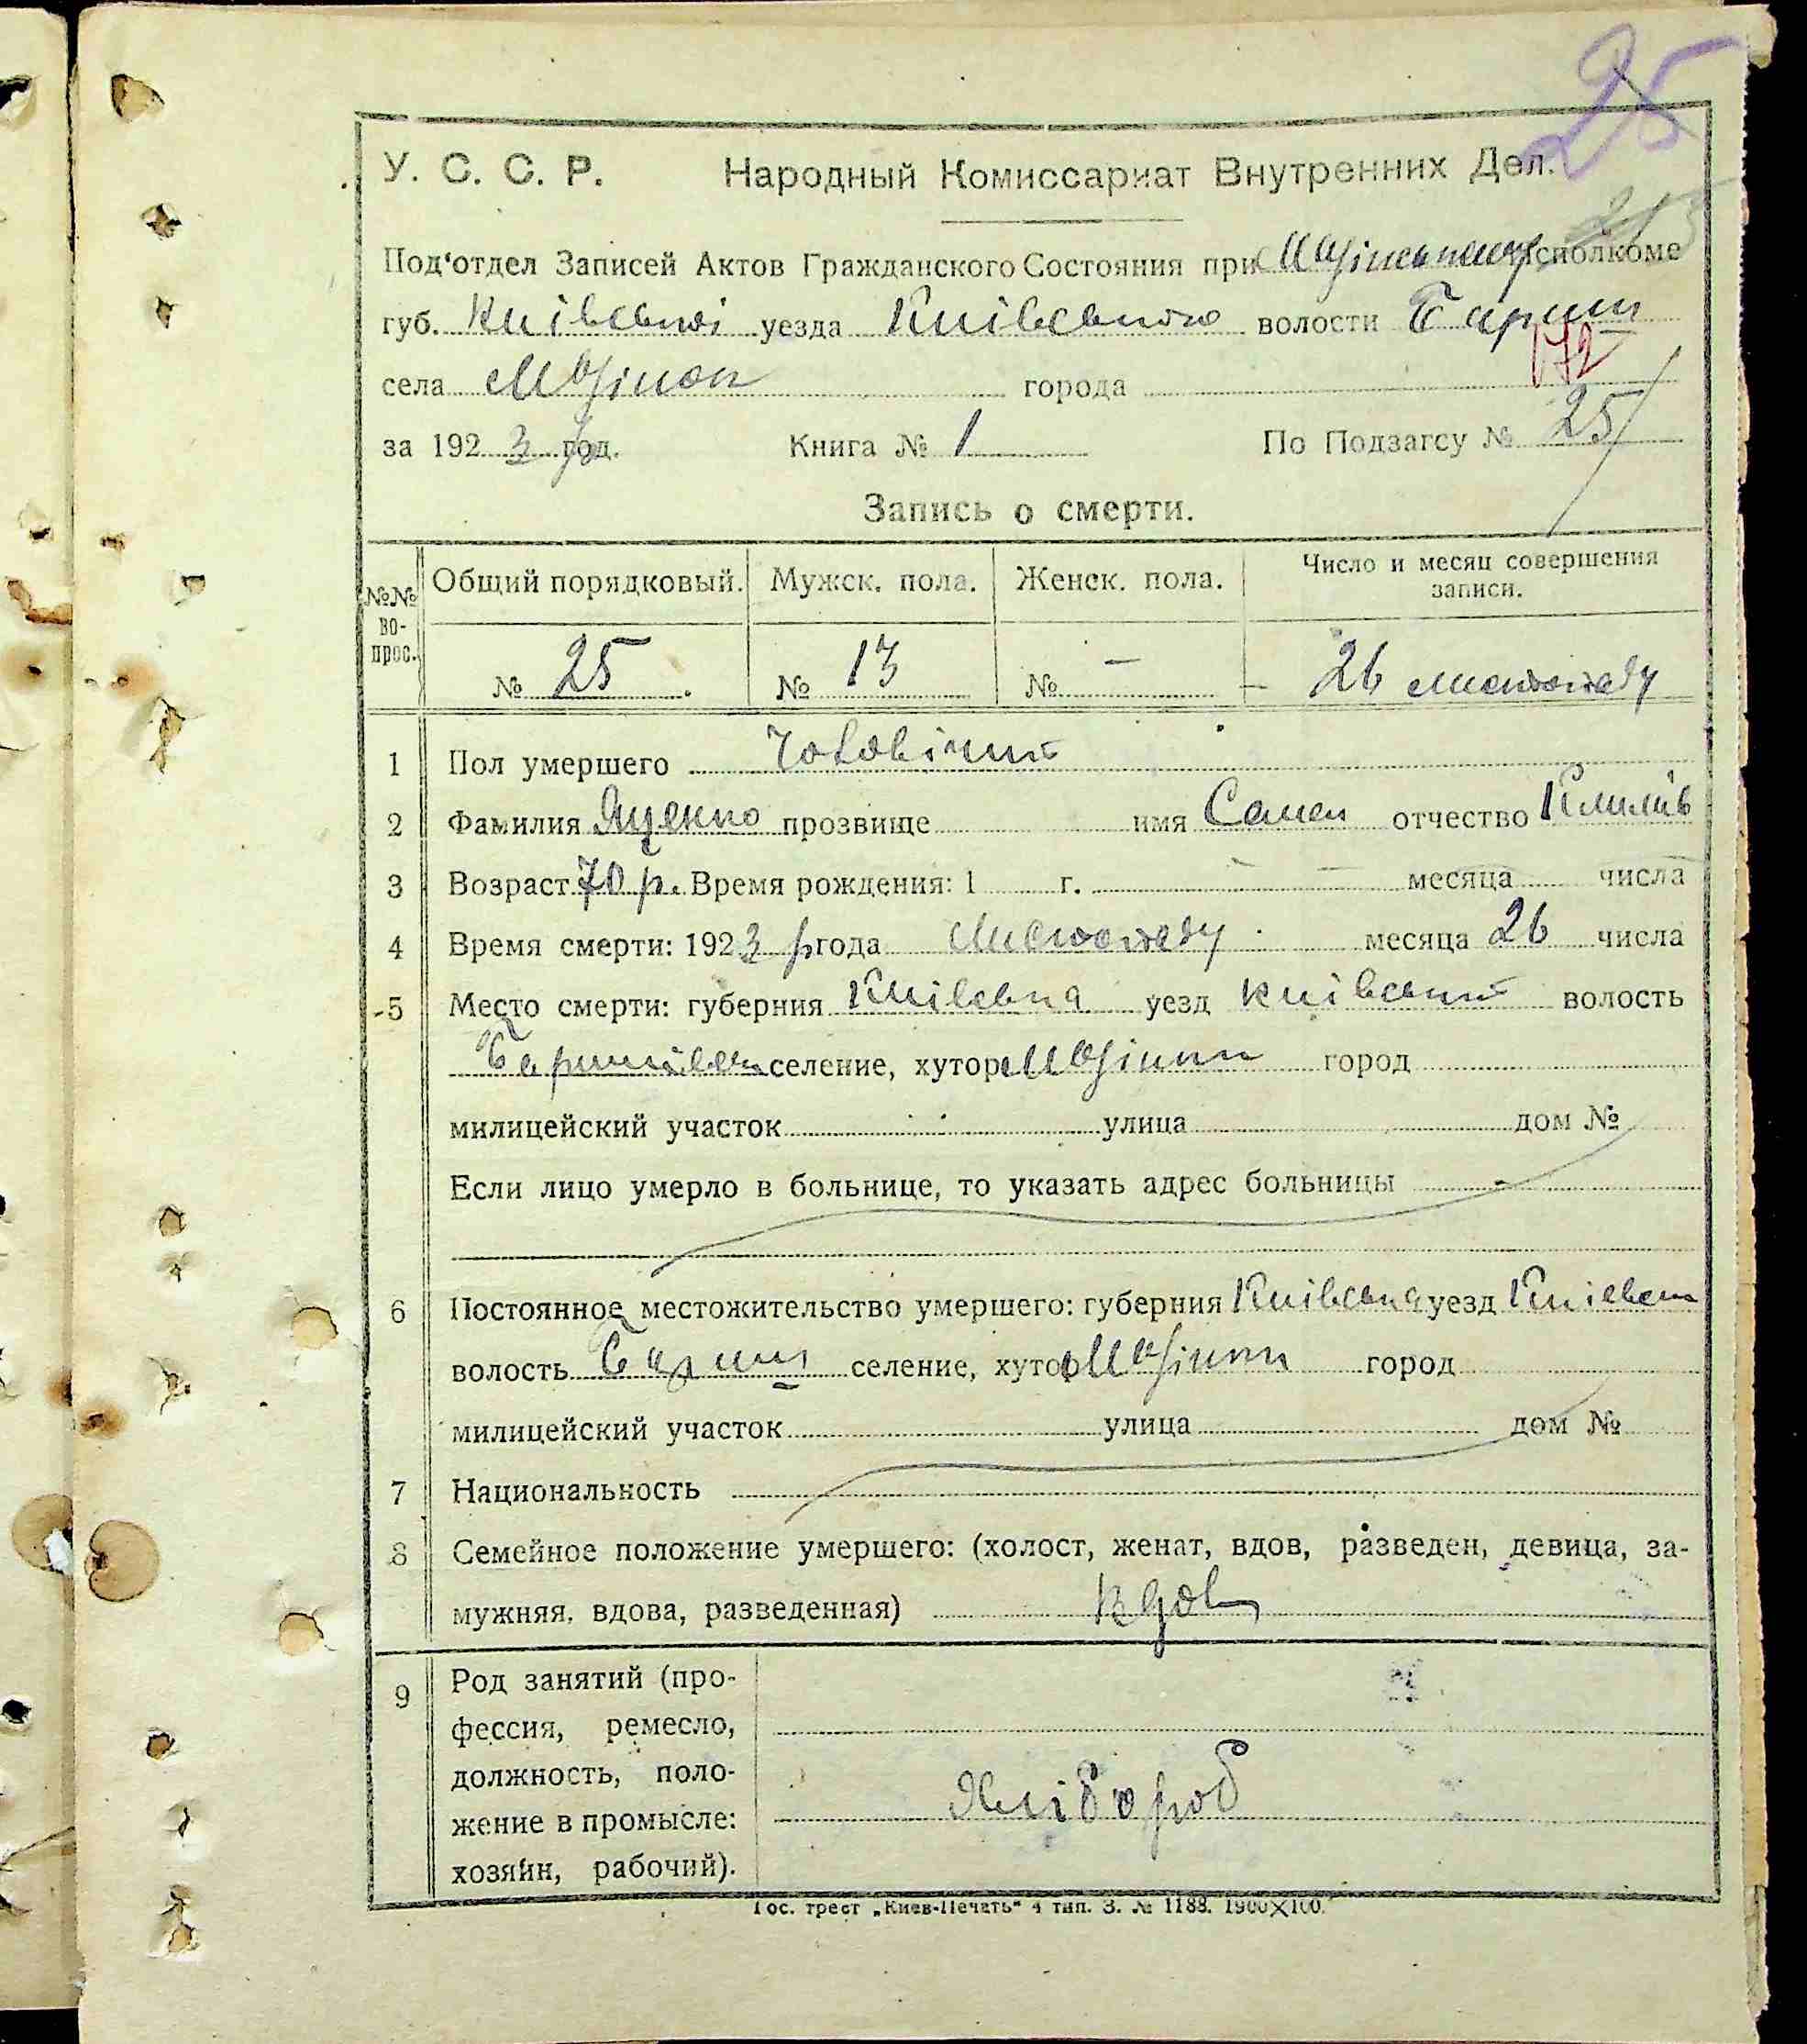 25
У. С. С. Р. Народный Комиссариат Внутренних Дел.
Под'отдел Записей Актов Гражданского Состояния при Исполкоме
губ. Київської уезда Київського волости Бариш
172
села города
за 1923 р год. Книга № 1 По Подзагсу № 25
Запись о смерти.
№№ во-прос. Общий порядковый. Мужск. пола. Женск. пола. Число и месяц совершения записи.
№ 25 № 13 № — 26 листопаду
1 Пол умершего чоловічий
2 Фамилия Яценко прозвище имя Семен отчество
3 Возраст 70 р. Время рождения: 1 г. месяца числа
4 Время смерти: 1923 р года листопаду месяца 26 числа
-5 Место смерти: губерния Київська уезд Київський волость
селение, хутор город
милицейский участок улица дом №
Если лицо умерло в больнице, то указать адрес больницы
6 Постоянное местожительство умершего: губерния Київська уезд Київськ
волость Бариш селение, хутор город
милицейский участок улица дом №
7 Национальность
8 Семейное положение умершего: (холост, женат, вдов, разведен, девица, за-
мужняя, вдова, разведенная) Вдов
9 Род занятий (про-
фессия, ремесло,
должность, поло-
жение в промысле: Хлібороб
хозяин, рабочий).
Гос. трест „Киев-Печать“ 4 тип. З. № 1188. 1900×100.